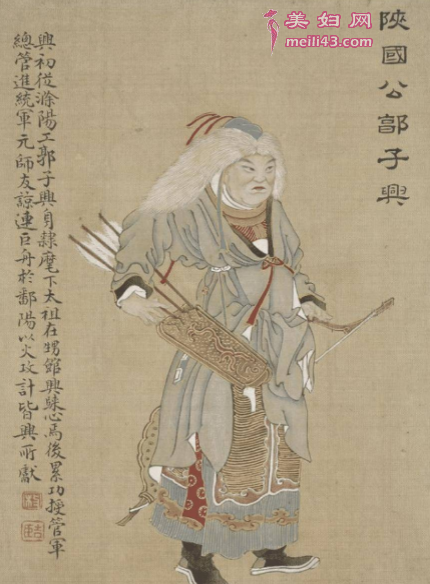 美妇网
meili43.com
陝國公郭子興
興初從滁陽王郭子興身隸麾下太祖在甥館興歸心焉後累功授管軍
總管進統軍元帥友諒連巨舟於鄱陽以火攻計皆興所獻